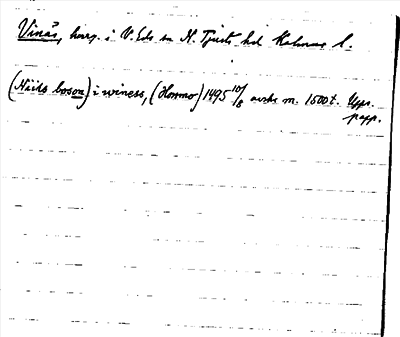 Vinäs, herrg. i V. Eds sn N. Tjusts hd Kalmar l.
(Niils boson) i winess, (Hommo) 1495 10/8 avskr. m. 1500 t. Upps.
papp.